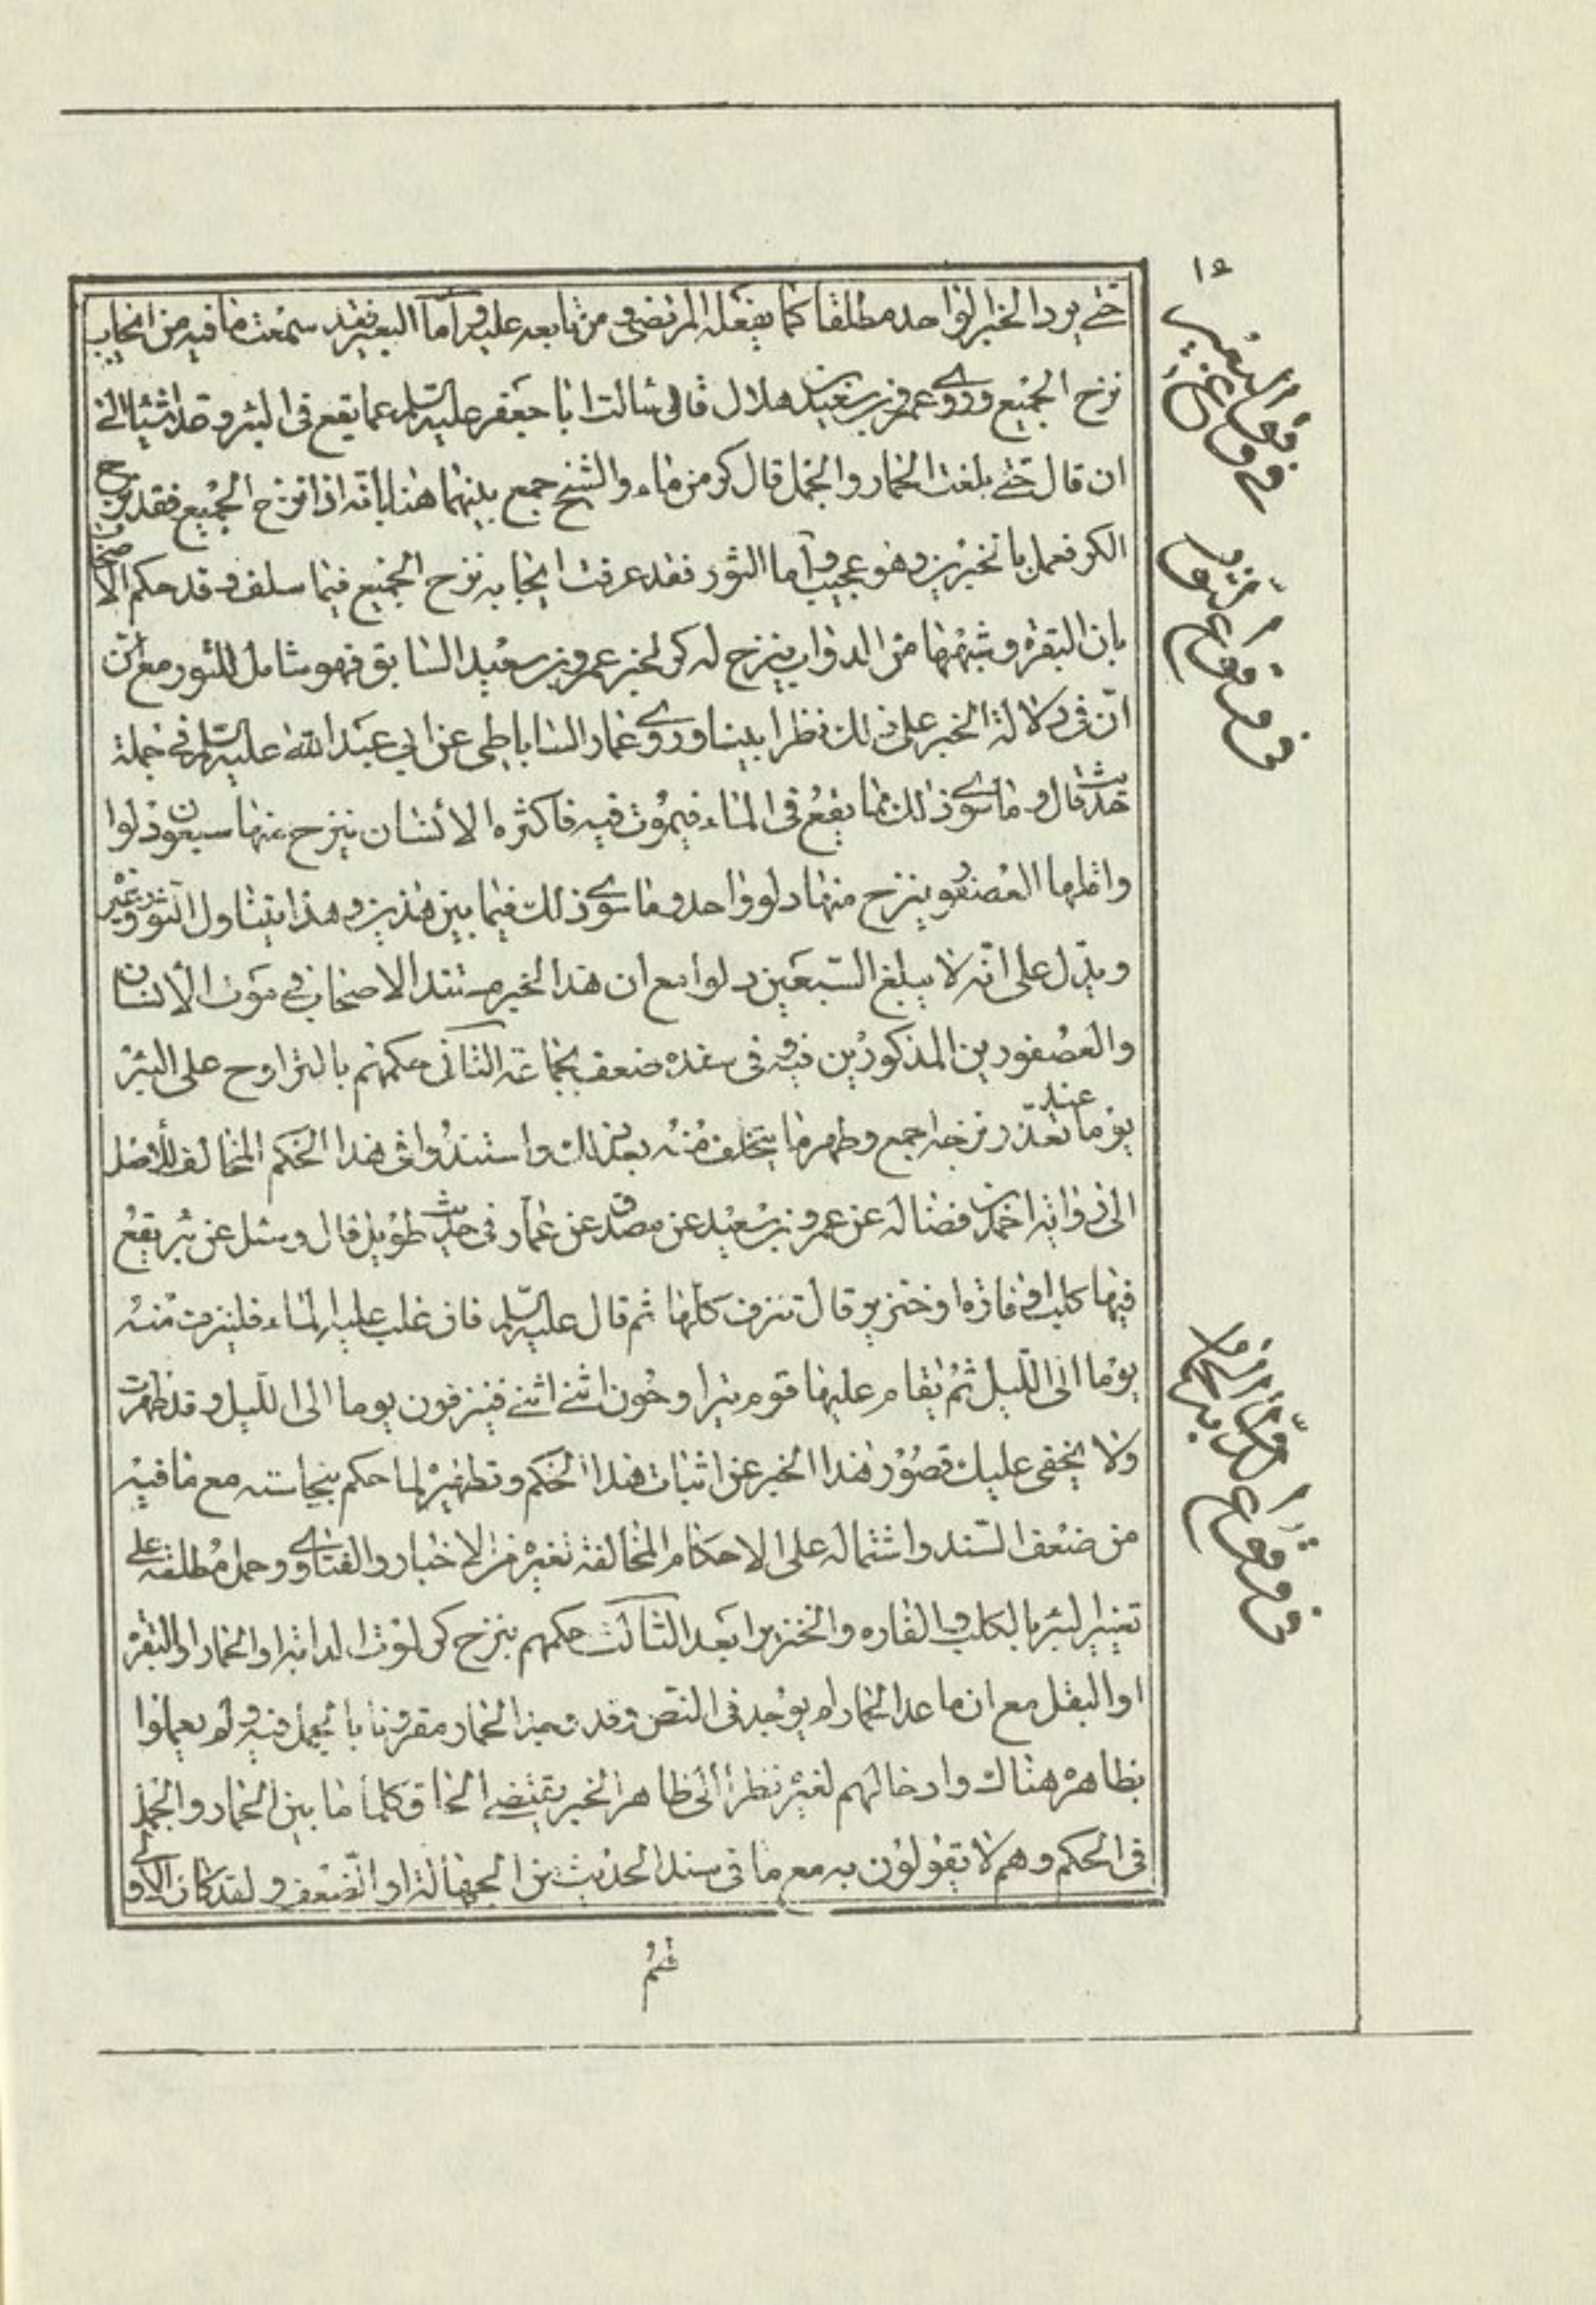 ١٥
حتى يرد الخبر الواحد مطلقا كما يفعله المرتضى و من تابعه عليه و أما البعير فقد سمعت ما فيه من ايجاب
نزح الجميع و روى عمرو بن سعيد بن هلال قال سألت ابا جعفر عليه السلم عما يقع فى البئر و عد اشياء الى
ان قال حتى بلغت الحمار و الجمل قال كر من ماء و الشيخ جمع بينهما هنا بانه اذا نزح الجميع فقد نزح
الكر فعمل بالخبرين و هو عجيب و أما الثور فقد عرفت ايجابه نزح الجميع فيما سلف و قد حكم الاصحاب
بان البقرة و شبهها من الدواب ينزح له كر لخبر عمرو بن سعيد السابق فهو شامل للثور مع ان
انّ فى دلالة الخبر على ذلك نظرا بينا و روى عمار الساباطى عن ابي عبد الله عليه السلم فى جملة
حديث قال و ما سوى ذلك مما يقع فى الماء فيموت فيه فاكثره الأنسان ينزح منها سبعون دلوا
و اقلها العصفور ينزح منها دلو واحد و ما سوى ذلك فيما بين هذين و هذا يتناول الثور و غيره
و يدل على انّه لا يبلغ السّبعين دلوا مع ان هذا الخبر مستند الاصحاب فى موت الأنسان
و العصفور بن المذكورين فيه و فى سنده ضعف بجماعة الثانى حكمهم بالتراوح على البئر
يوما عند تعذّر نزحه اجمع و طهر ما يتخلف منه بعد ذلك و استندوا فى هذا الحكم المخالف للأصل
الى رواية احمد بن فضاله عن عمرو بن سعيد عن مصدق عن عمار فى حديث طويل قال و سئل عن بئر يقع
فيها كلب او فارة او خنزير قال تنزف كلها ثم قال عليه السّلم فان غلب عليه الماء فلينزف منه
يوما الى اللّيل ثم يقام عليها قوم يتراوحون اثنين اثنين فينزفون يوما الى الليل و قد طهرت
و لا يخفى عليك قصور هذا الخبر عن اثبات هذا الحكم و تطهير لما حكم بنجاسته مع ما فيه
من ضعف السّند و اشتماله على الاحكام المخالفة لغيره من الاخبار و الفتاوى و حمل مطلقه على
تغيير البئر بالكلب و الفاره و الخنزير ابعد الثالث حكمهم بنزح كر لموت الدابة او الحمار او البقرة
او البغل مع ان ما عدا الحمار لم يوجد فى النص و قد الحمار مقرونا بالجمل فيه و لم يعملوا
بظاهره هناك و ادخالهم لغيره نظرا الى ظاهر الخبر يقتضى الحاق كلما ما بين الحمار و الجمل
فى الحكم و هم لا يقولون به مع ما فى سند الحديث من الجهالة او الضعف و لقد كان الاولى